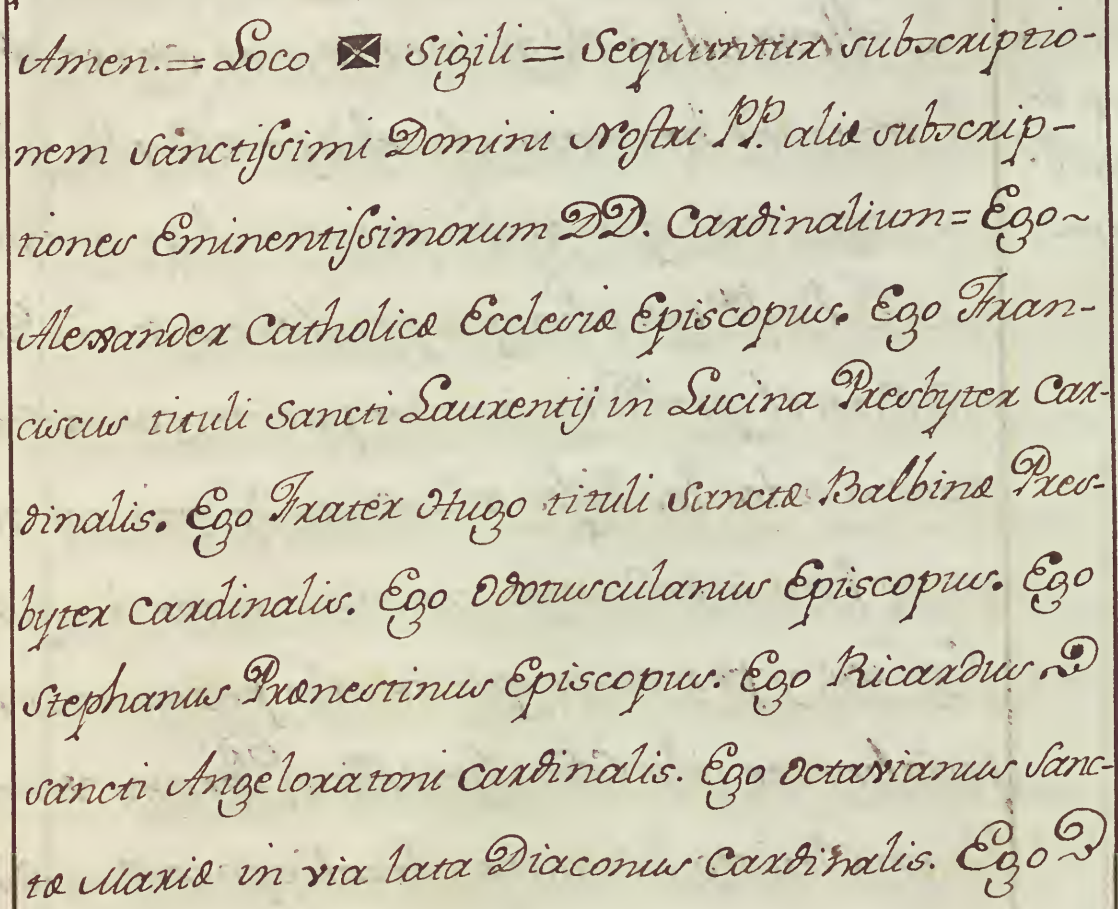 Amen. = Loco ☒ Sigili = Sequuntur subscriptio-
nem Sanctissimi Domini Nostri PP. aliæ subscrip-
tiones Eminentissimorum DD. Cardinalium = Ego ~
Alexander Catholicæ Ecclesiæ Episcopus. Ego Fran-
ciscus tituli Sancti Laurentij in Lucina Presbyter Car-
dinalis. Ego Frater Hugo tituli Sanctæ Balbinæ Pres-
byter Cardinalis. Ego Odotusculanus Episcopus. Ego
Stephanus Prænestinus Episcopus. Ego Ricardus
Sancti Angeloratoni Cardinalis. Ego Octavianus Sanc-
tæ Mariæ in via lata Diaconus Cardinalis. Ego